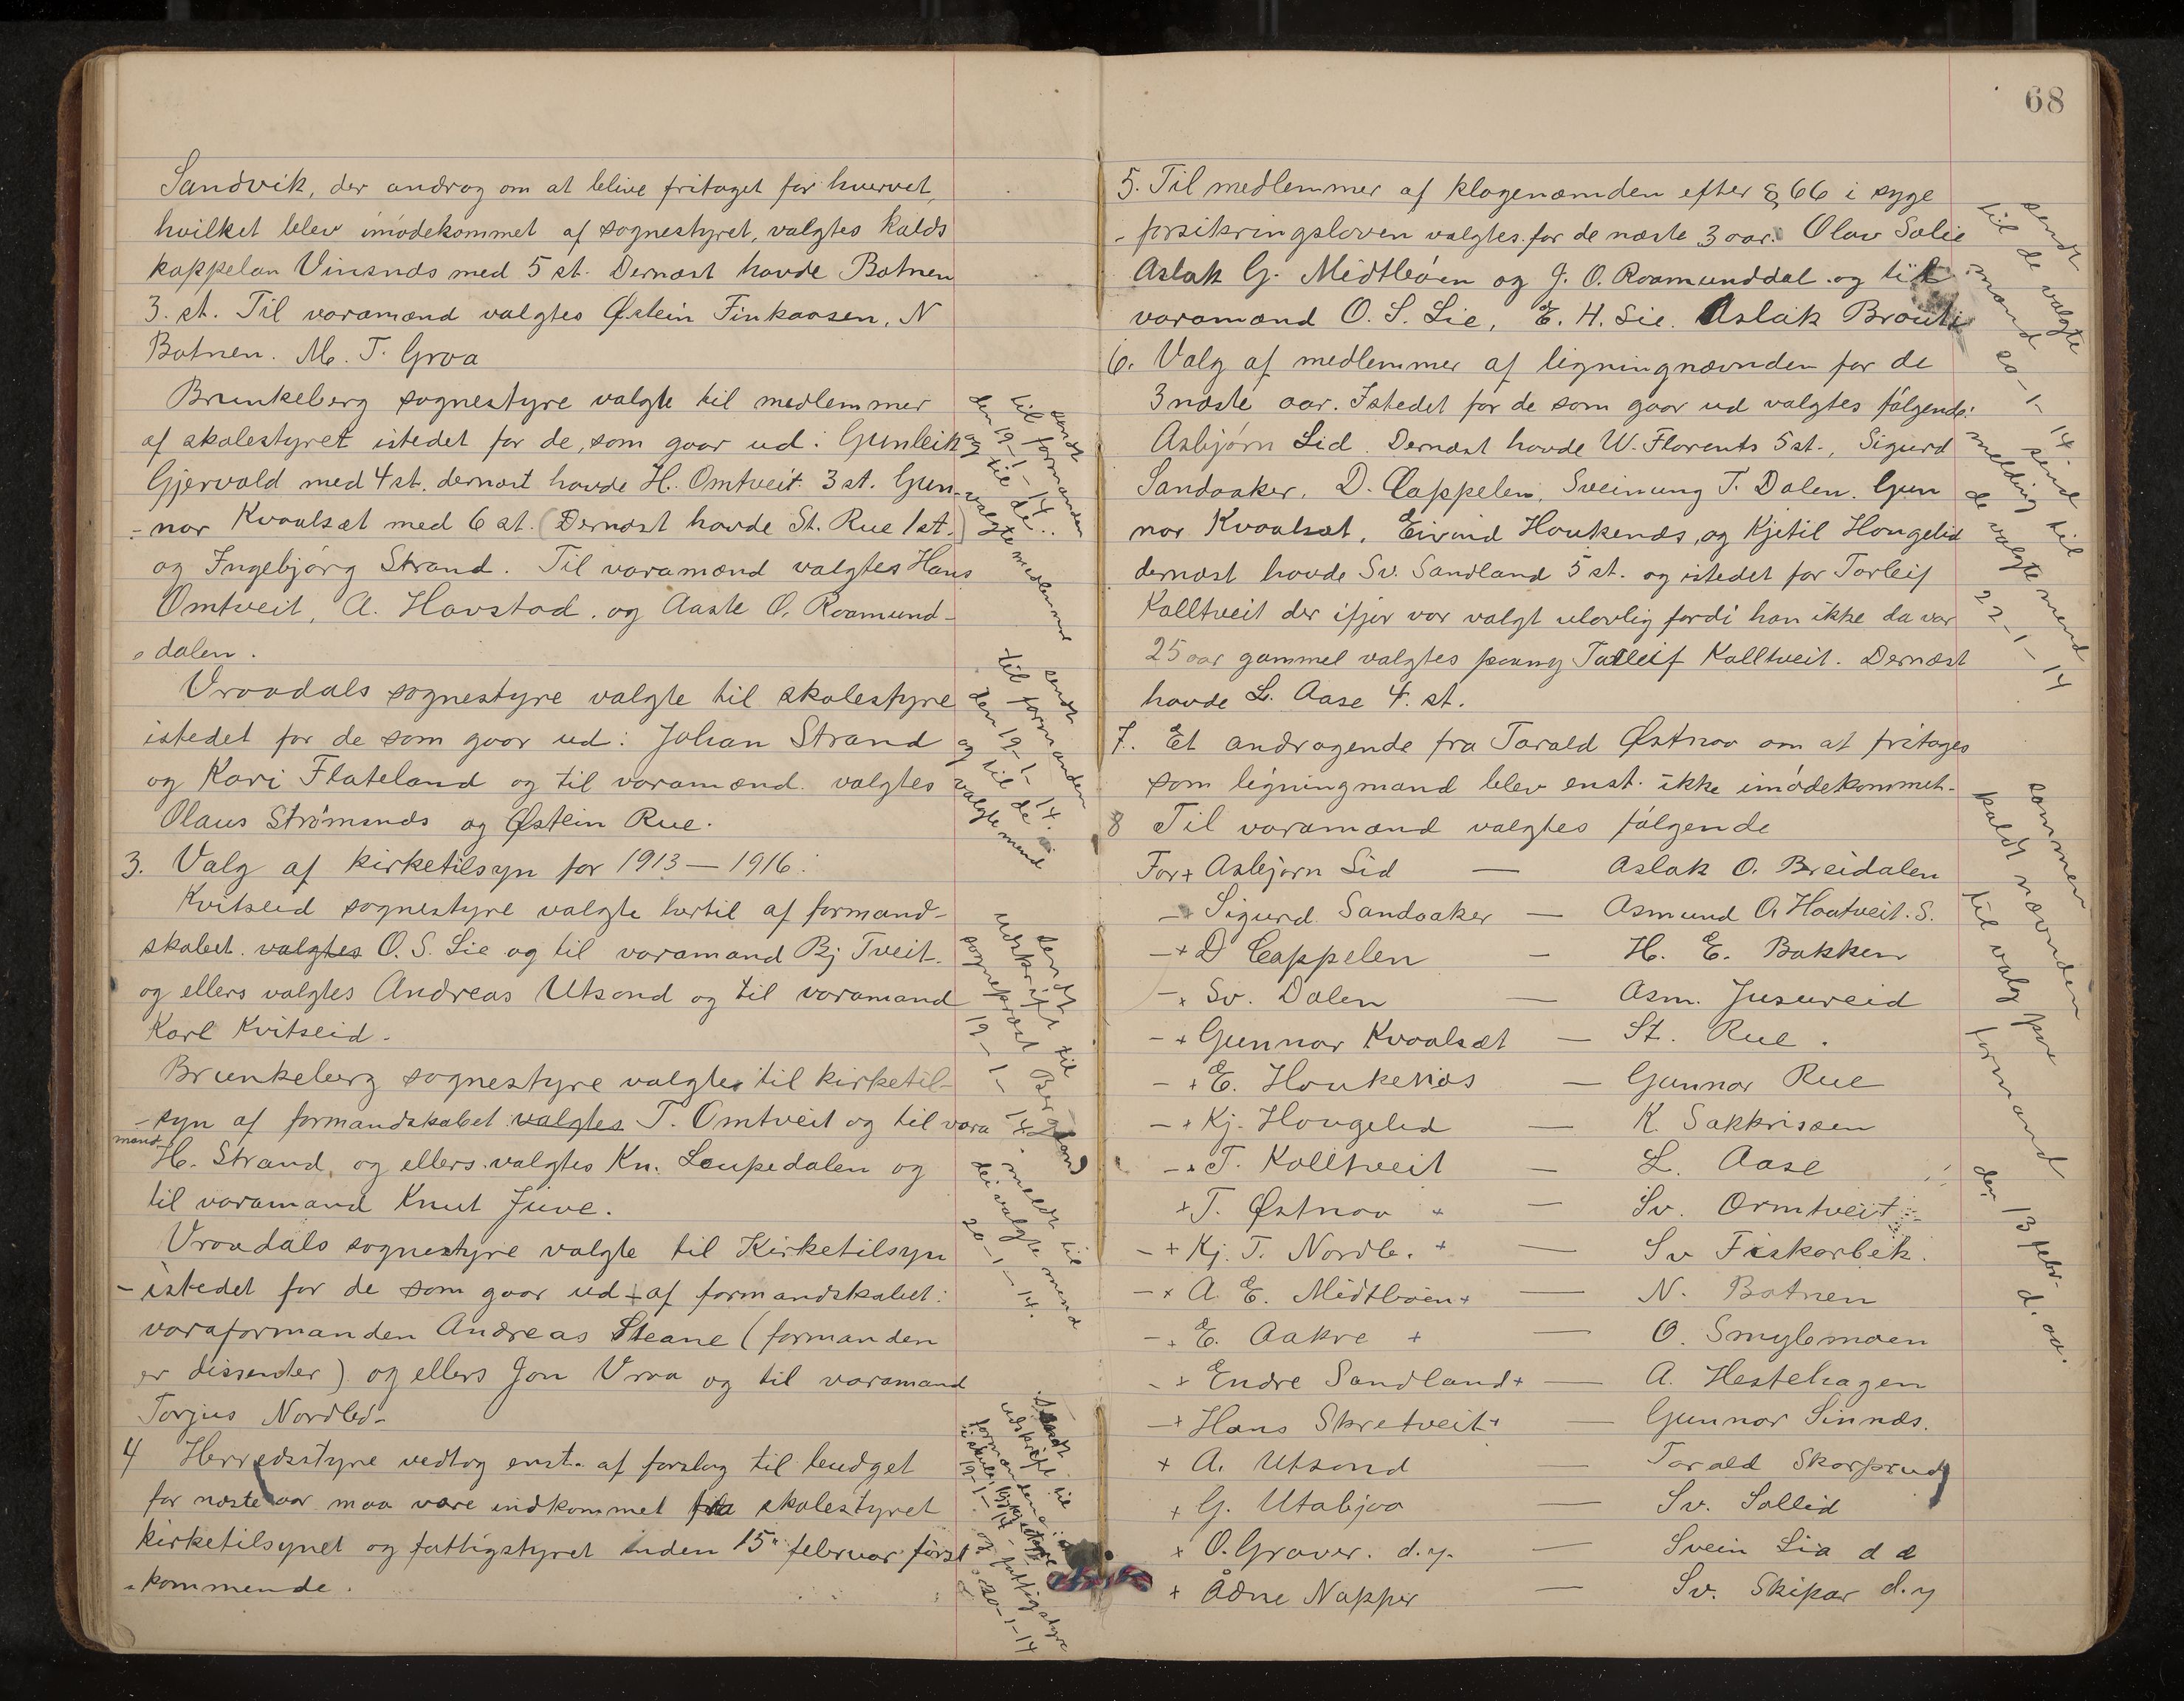 Sandvik, der androg om at blive fritaget for hvervet,
hvilket blev imødekommet af sognestyret, valgtes kalds
kappelan Vinsnæs med 5 st. Dernæst havde Botnen
3. st. Til varamænd valgtes Østein Finkaasen, N
Botnen. M. T. Groa
Brunkeberg sognestyre valgte til medlemmer
af skolestyret istedet for de, som gaar ud: Gunleik
Gjervald med 4 st. dernæst havde H. Omtveit 3 st. Gun-
-nar Kvaalsæt med 6 st. (Dernæst havde St. Rue 1 st.)
og Ingebjørg Strand. Til varamænd valgtes Hans
Omtveit, A. Havstad. og Aaste O. Raamund-
dalen.
Vraadals sognestyre valgte til skolestyre
istedet for de som gaar ud: Johan Strand
og Kari Flateland og til varamænd valgtes
Olaus Strømsnæs og Østein Rue.
3. Valg af kirketilsyn for 1913 — 1916:
Kvitseid sognestyre valgte hertil af formand-
skabet valgtes O. S. Lie og til varamand Bj Tveit.
og ellers valgtes Andreas Utsond og til varamand
Karl Kvitseid.
Brunkeberg sognestyre valgte til kirketil-
-syn af formandskabet valgtes T. Omtveit og til vara
mand
H. Strand, og ellers valgtes Kn. Loupedalen og
til varamand Knut Juve.
Vraadals sognestyre valgte til Kirketilsyn
- istedet for de som gaar ud + af formandskabet:
varaformanden Andreas Steane (formanden
er dissenter) og ellers Jon Vraa og til varamand
Torjus Nordbø-
4 Herredsstyre vedtog enst. af forslag til budget
for næste aar maa være indkommet fra skolestyret
kirketilsynet og fattigstyret inden 15" februar først
-kommende.
sendt
til formanden
den 19-1-14.
og til de
valgte medlemmer
sendt
til formanden
den 19-1-14.
og til de
valgte mænd
sendt
udskrift til
sogneprest Bergland
19-1-14. meldt til
de valgte mænd
20-1-14.
Sendt
udskrift til
formændene i
19-1-14
20-1-14
68
5. Til medlemmer af klagenæmden efter § 66 i syge
-forsikringsloven valgtes for de næste 3 aar: Olav Solie
Aslak G. Midtbøen og J. O. Raamunddal og til
varamænd O. S. Lie, E. H. Lie. Aslak Brauti
6. Valg af medlemmer af ligningnævnden for de
3 næste aar. Istedet for de som gaar ud valgtes følgende:
Asbjørn Lid. Dernæst havde W. Florents 5 st., Sigurd
Sandaaker, D. Cappelen, Sveinung T. Dalen. Gun
nar Kvaalsæt, Eivind Haukenæs, og Kjetil Haugelid
dernæst havde Sv. Sandland 5 st. og istedet for Torleif
Kalltveit der ifjor var valgt ulovlig fordi han ikke da var
25 aar gammel valgtes paany Talleif Kalltveit. Dernæst
havde L. Aase 4. st.
7. Et andragende fra Tarald Østnaa om at fritages
som ligningmand blev enst. ikke imødekommet.
8 Til varamænd valgtes følgende
For + Asbjørn Lid — Aslak O. Breidalen
— Sigurd Sandaaker — Asmund O. Haatveit. S.
— + D Cappelen — H. E. Bakken
— + Sv. Dalen — Asm. Jusureid
— + Gunnar Kvaalsæt — St. Rue.
— + E. Haukenæs — Gunnar Rue
— + Kj. Haugelid — K. Sakkrissen
— + T. Kalltveit — L. Aase
+ T. Østnaa + — Sv. Ormtveit
— + Kj. T. Nordb. + — Sv Fiskarbek.
— + A. E. Midtbøen + — N. Botnen
— + E. Aakre + — O. Smylemoen
— + Endre Sandland + — A. Hestehagen
— + Hans Skretveit + — Gunnar Sinnæs.
+ A. Utsond — Tarald Skarprud
+ G. Utabjaa — Sv. Sollid
+ O. Graver. d.y. — Svein Lia d e
+ Ådne Napper — Sv. Skipar d.y
sendt
til de valgte
mænd 20-1-14 sendt
melding til
de valgte mænd
22-1-14
sammen
kaldt nævnden
til valg paa
formand
den 13 febr. d. aa.